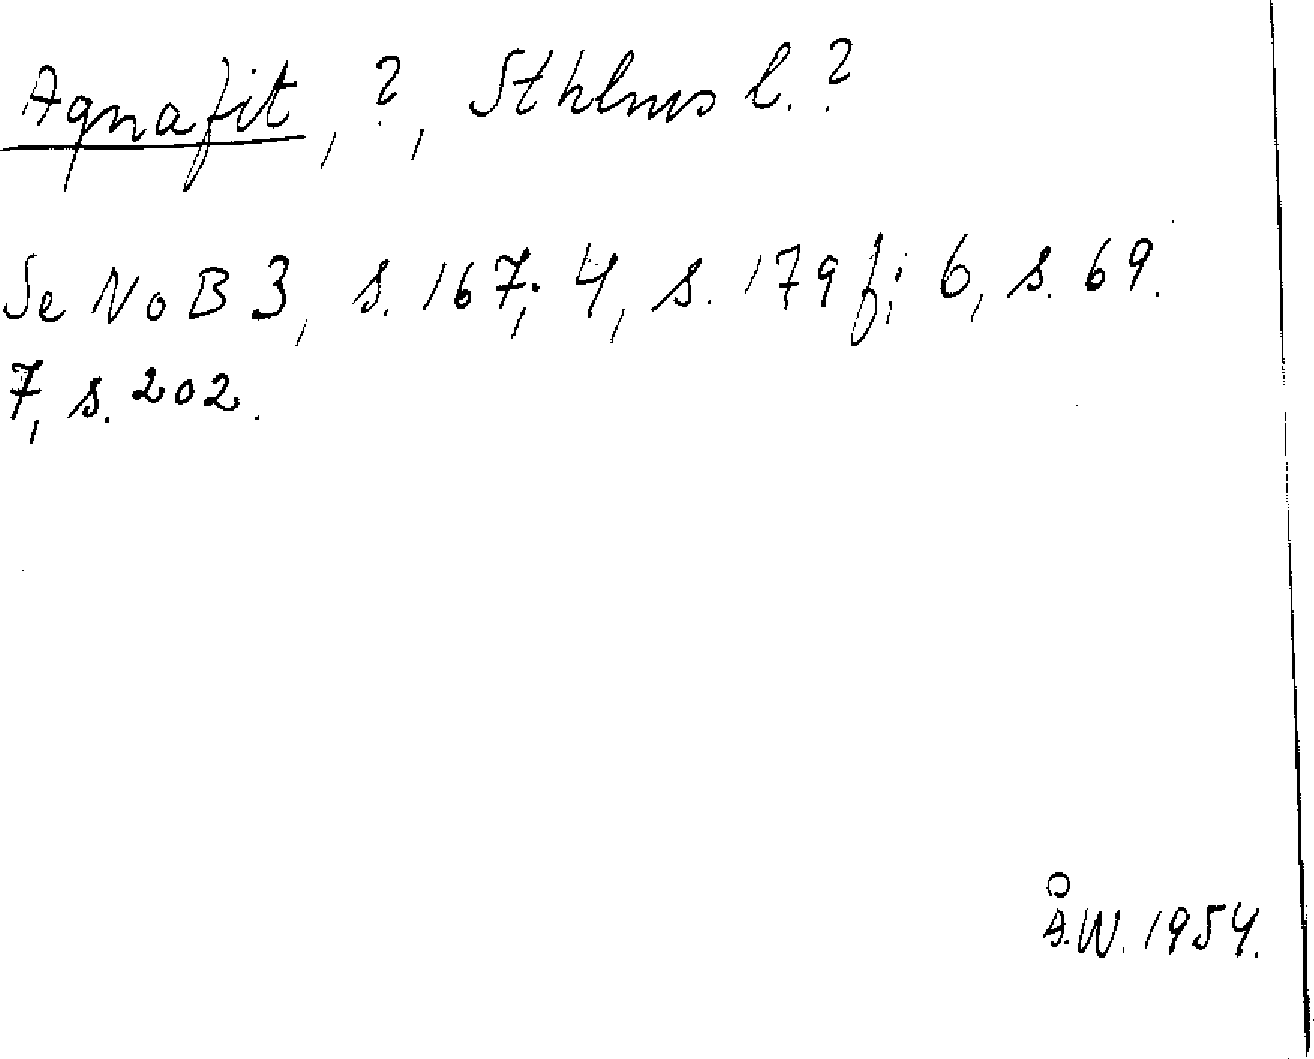 Agnafit, ?, Sthlms l. ?
Se NoB 3, s. 167; 4, s. 179 f; 6, s. 69.
7, s. 202.
Å.W. 1954.